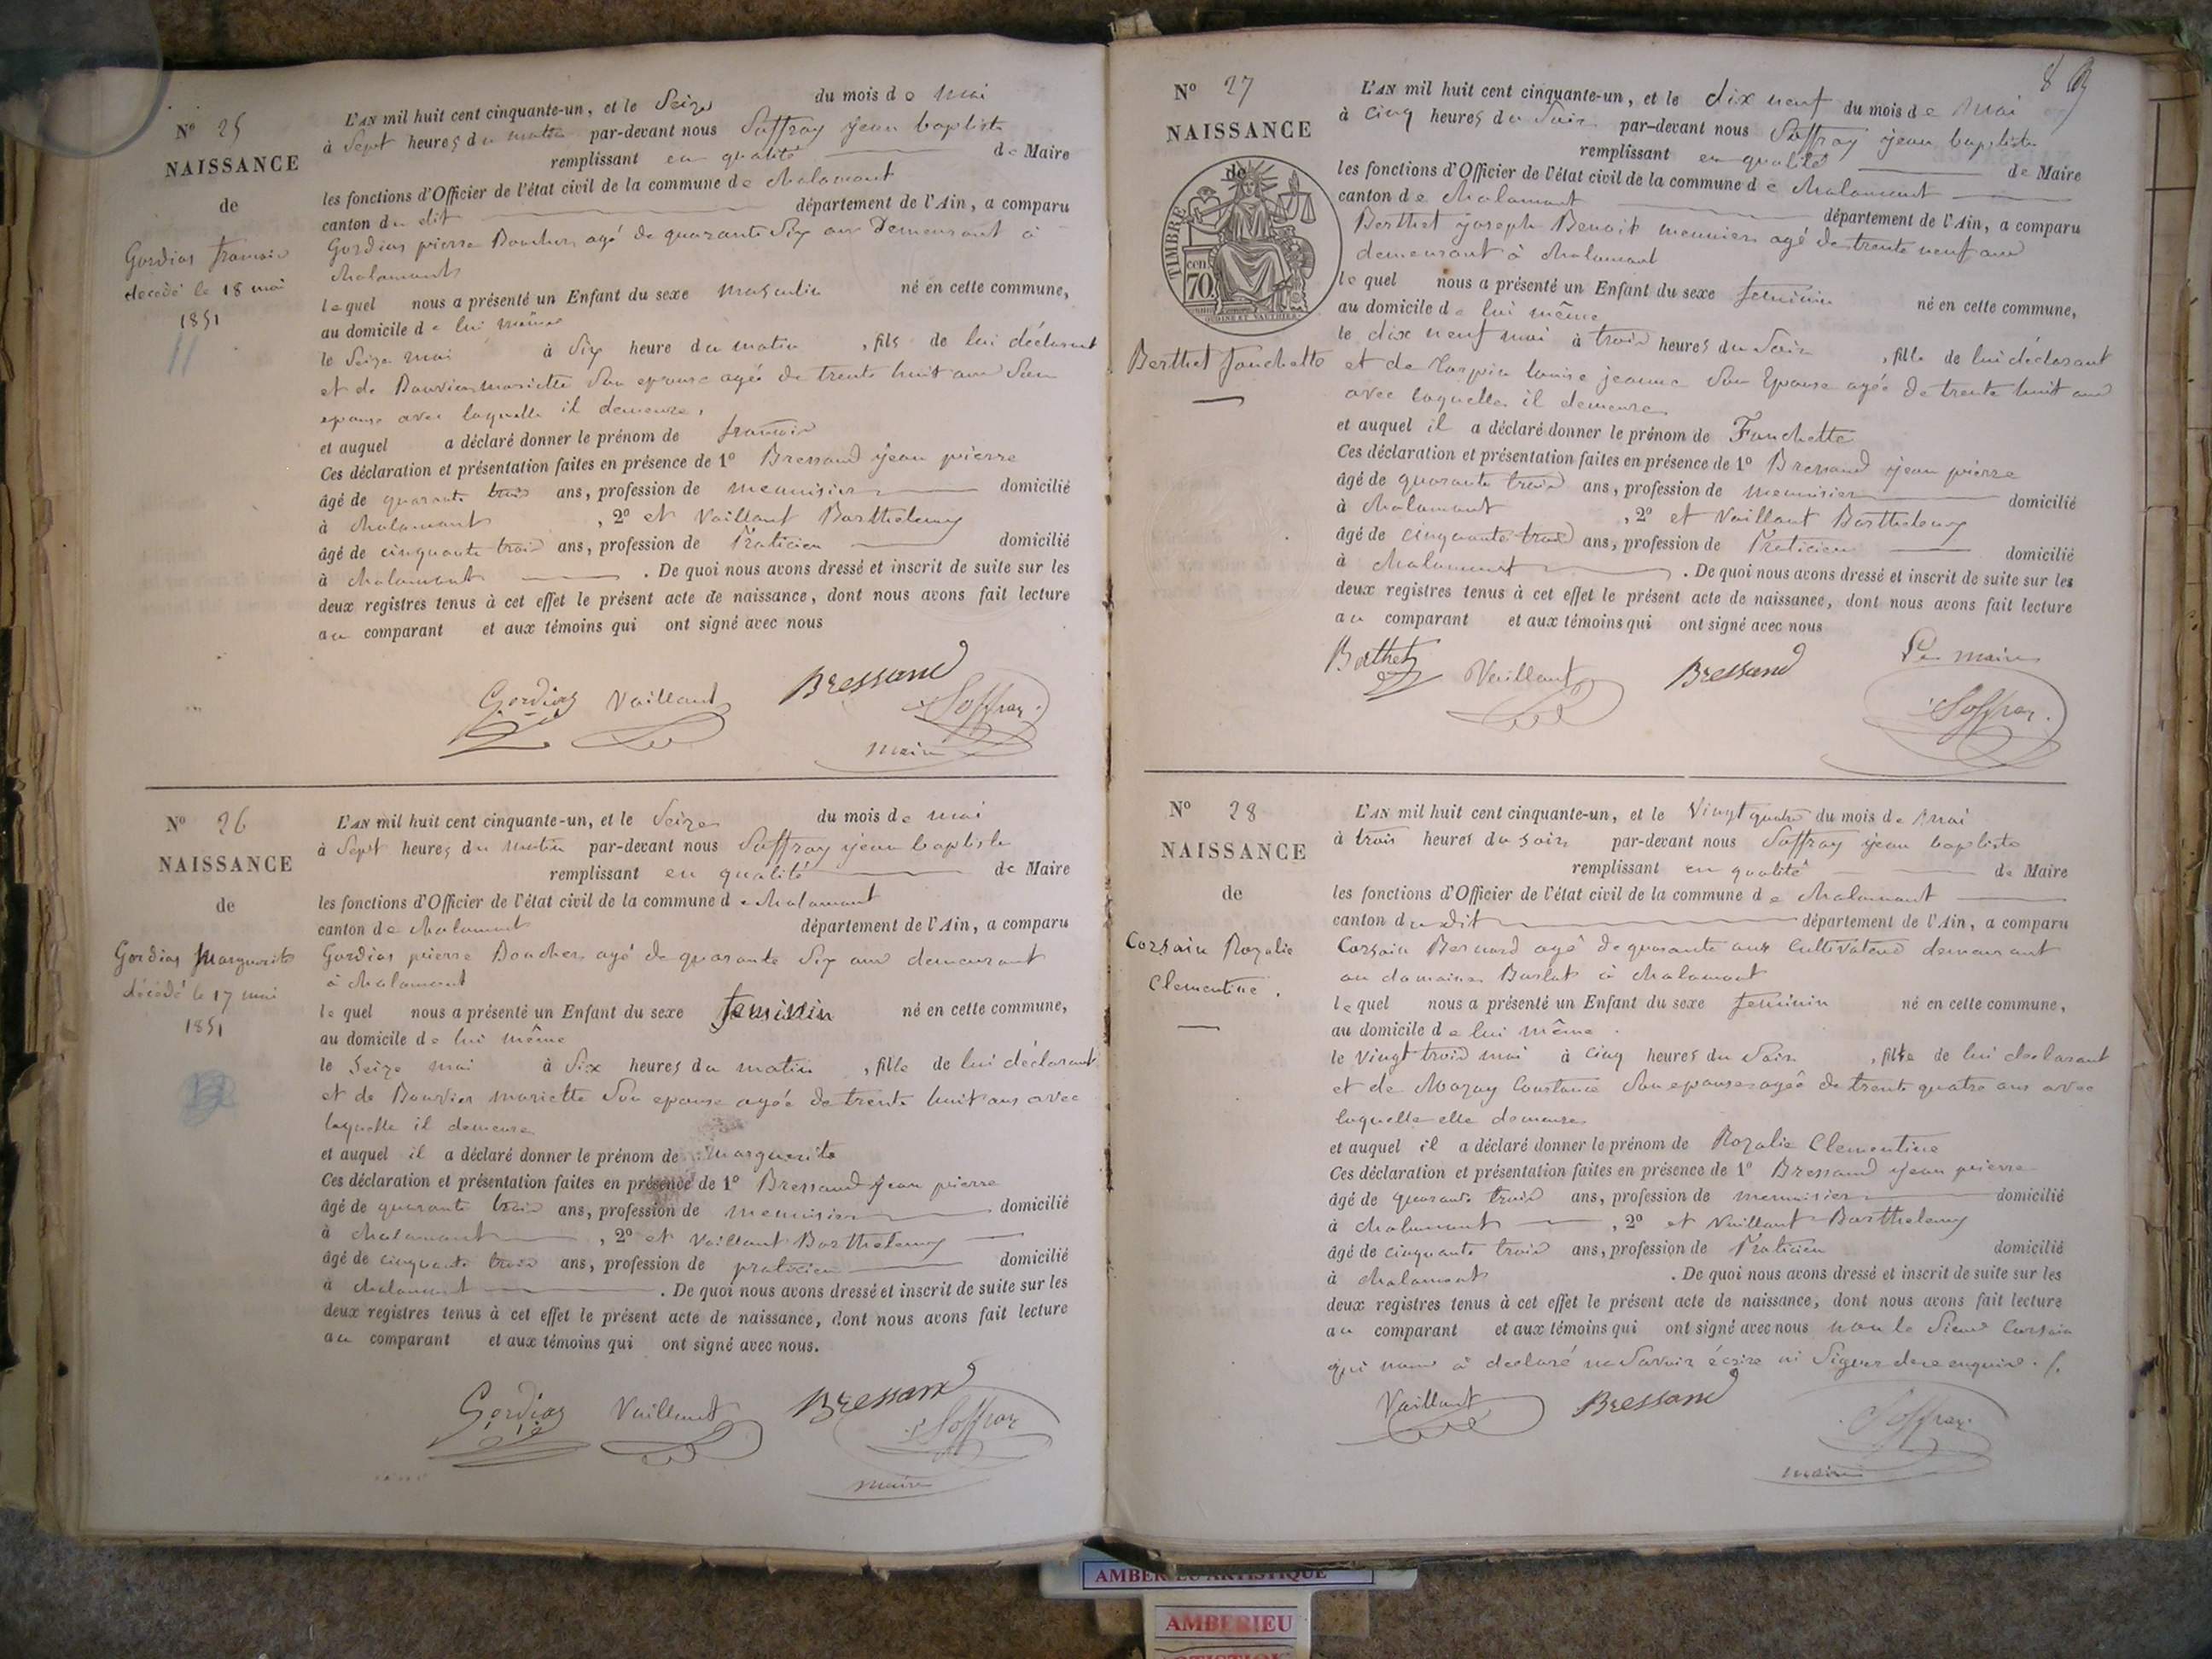 Nº 25
NAISSANCE
de
Gordias francois
décédé le 18 mai
1851
11
L'AN mil huit cent cinquante-un, et le Seize du mois de mai
à Sept heures du matin par-devant nous Soffray jean baptiste
remplissant en qualité de Maire
les fonctions d'Officier de l'état civil de la commune de chalamont
canton du dit département de l'Ain, a comparu
Gordias pierre Boucher agé de quarante Six ans Demeurant à
chalamont
lequel nous a présenté un Enfant du sexe masculin né en cette commune,
au domicile de lui même
le Seize mai à Six heure du matin, fils de lui déclarant
et de Bouvier mariette Son epouse agée de trente huit ans Son
epouse avec laquelle il demeure,
et auquel a déclaré donner le prénom de francois
Ces déclaration et présentation faites en présence de 1º Bressand jean pierre
âgé de quarante trois ans, profession de menuisier domicilié
à chalamont, 2º et Vaillant Barthelemy
âgé de cinquante trois ans, profession de Praticien domicilié
à chalamont. De quoi nous avons dressé et inscrit de suite sur les
deux registres tenus à cet effet le présent acte de naissance, dont nous avons fait lecture
au comparant et aux témoins qui ont signé avec nous
Gordias Vaillant Bressand Soffray
maire
Nº 26
NAISSANCE
de
Gordias Marguerite
décédé le 17 mai
1851
L'AN mil huit cent cinquante-un, et le Seize du mois de mai
à Sept heures du matin par-devant nous Soffray jean baptiste
remplissant en qualité de Maire
les fonctions d'Officier de l'état civil de la commune de chalamont
canton de chalamont département de l'Ain, a comparu
Gordias pierre Boucher agé de quarante Six ans demeurant
à chalamont
lequel nous a présenté un Enfant du sexe feminin né en cette commune,
au domicile de lui même
le Seize mai à Six heures du matin, fille de lui déclarant
et de Bouvier mariette Son epouse agée de trente huit ans avec
laquelle il demeure
et auquel il a déclaré donner le prénom de Marguerite
Ces déclaration et présentation faites en présence de 1º Bressand jean pierre
âgé de quarante trois ans, profession de menuisier domicilié
à chalamont, 2º et Vaillant Barthelemy
âgé de cinquante trois ans, profession de praticien domicilié
à chalamont. De quoi nous avons dressé et inscrit de suite sur les
deux registres tenus à cet effet le présent acte de naissance, dont nous avons fait lecture
au comparant et aux témoins qui ont signé avec nous.
Gordias Vaillant Bressand Soffray
maire
Nº 27
NAISSANCE
de
TIMBRE
70 cen
Berthet fanchette
L'AN mil huit cent cinquante-un, et le dix neuf du mois de Mai
à cinq heures du Soir par-devant nous Soffray jean baptiste
remplissant en qualité de Maire
les fonctions d'Officier de l'état civil de la commune de chalamont
canton de chalamont département de l'Ain, a comparu
Berthet joseph Benoit meunier agé de trente neuf ans
demeurant à chalamont
lequel nous a présenté un Enfant du sexe feminin né en cette commune,
au domicile de lui même
le dix neuf mai à trois heures du Soir, fille de lui déclarant
et de louise jeanne Son Epouse agée de trente huit ans
avec laquelle il demeure
et auquel il a déclaré donner le prénom de Fanchette
Ces déclaration et présentation faites en présence de 1º Bressand jean pierre
âgé de quarante trois ans, profession de menuisier domicilié
à chalamont, 2º et Vaillant Barthelemy
âgé de cinquante trois ans, profession de Praticien domicilié
à chalamont. De quoi nous avons dressé et inscrit de suite sur les
deux registres tenus à cet effet le présent acte de naissance, dont nous avons fait lecture
au comparant et aux témoins qui ont signé avec nous
Berthet Vaillant Bressand Le maire
Soffray
Nº 28
NAISSANCE
de
Corsain Rozalie
Clementine.
L'AN mil huit cent cinquante-un, et le Vingt quatre du mois de Mai
à trois heures du soir par-devant nous Soffray jean baptiste
remplissant en qualité de Maire
les fonctions d'Officier de l'état civil de la commune de chalamont
canton du dit département de l'Ain, a comparu
Corsain Bernard agé de quarante ans Cultivateur demeurant
au domaine Barlat à chalamont
lequel nous a présenté un Enfant du sexe feminin né en cette commune,
au domicile de lui même.
le vingt trois mai à cinq heures du Soir, fille de lui declarant
et de Mozuy Constance Son epouse agée de trente quatre ans avec
laquelle elle demeure
et auquel il a déclaré donner le prénom de Rozalie Clementine
Ces déclaration et présentation faites en présence de 1º Bressand jean pierre
âgé de quarante trois ans, profession de menuisier domicilié
à chalamont, 2º et Vaillant Barthelemy
âgé de cinquante trois ans, profession de Praticien domicilié
à chalamont. De quoi nous avons dressé et inscrit de suite sur les
deux registres tenus à cet effet le présent acte de naissance, dont nous avons fait lecture
au comparant et aux témoins qui ont signé avec nous non le Sieur Corsain
qui nous a declaré ne Savoir écrire ni Signer de ce enquis.
Vaillant Bressand Soffray
maire
AMBERIEU ARTISTIQUE
AMBERIEU